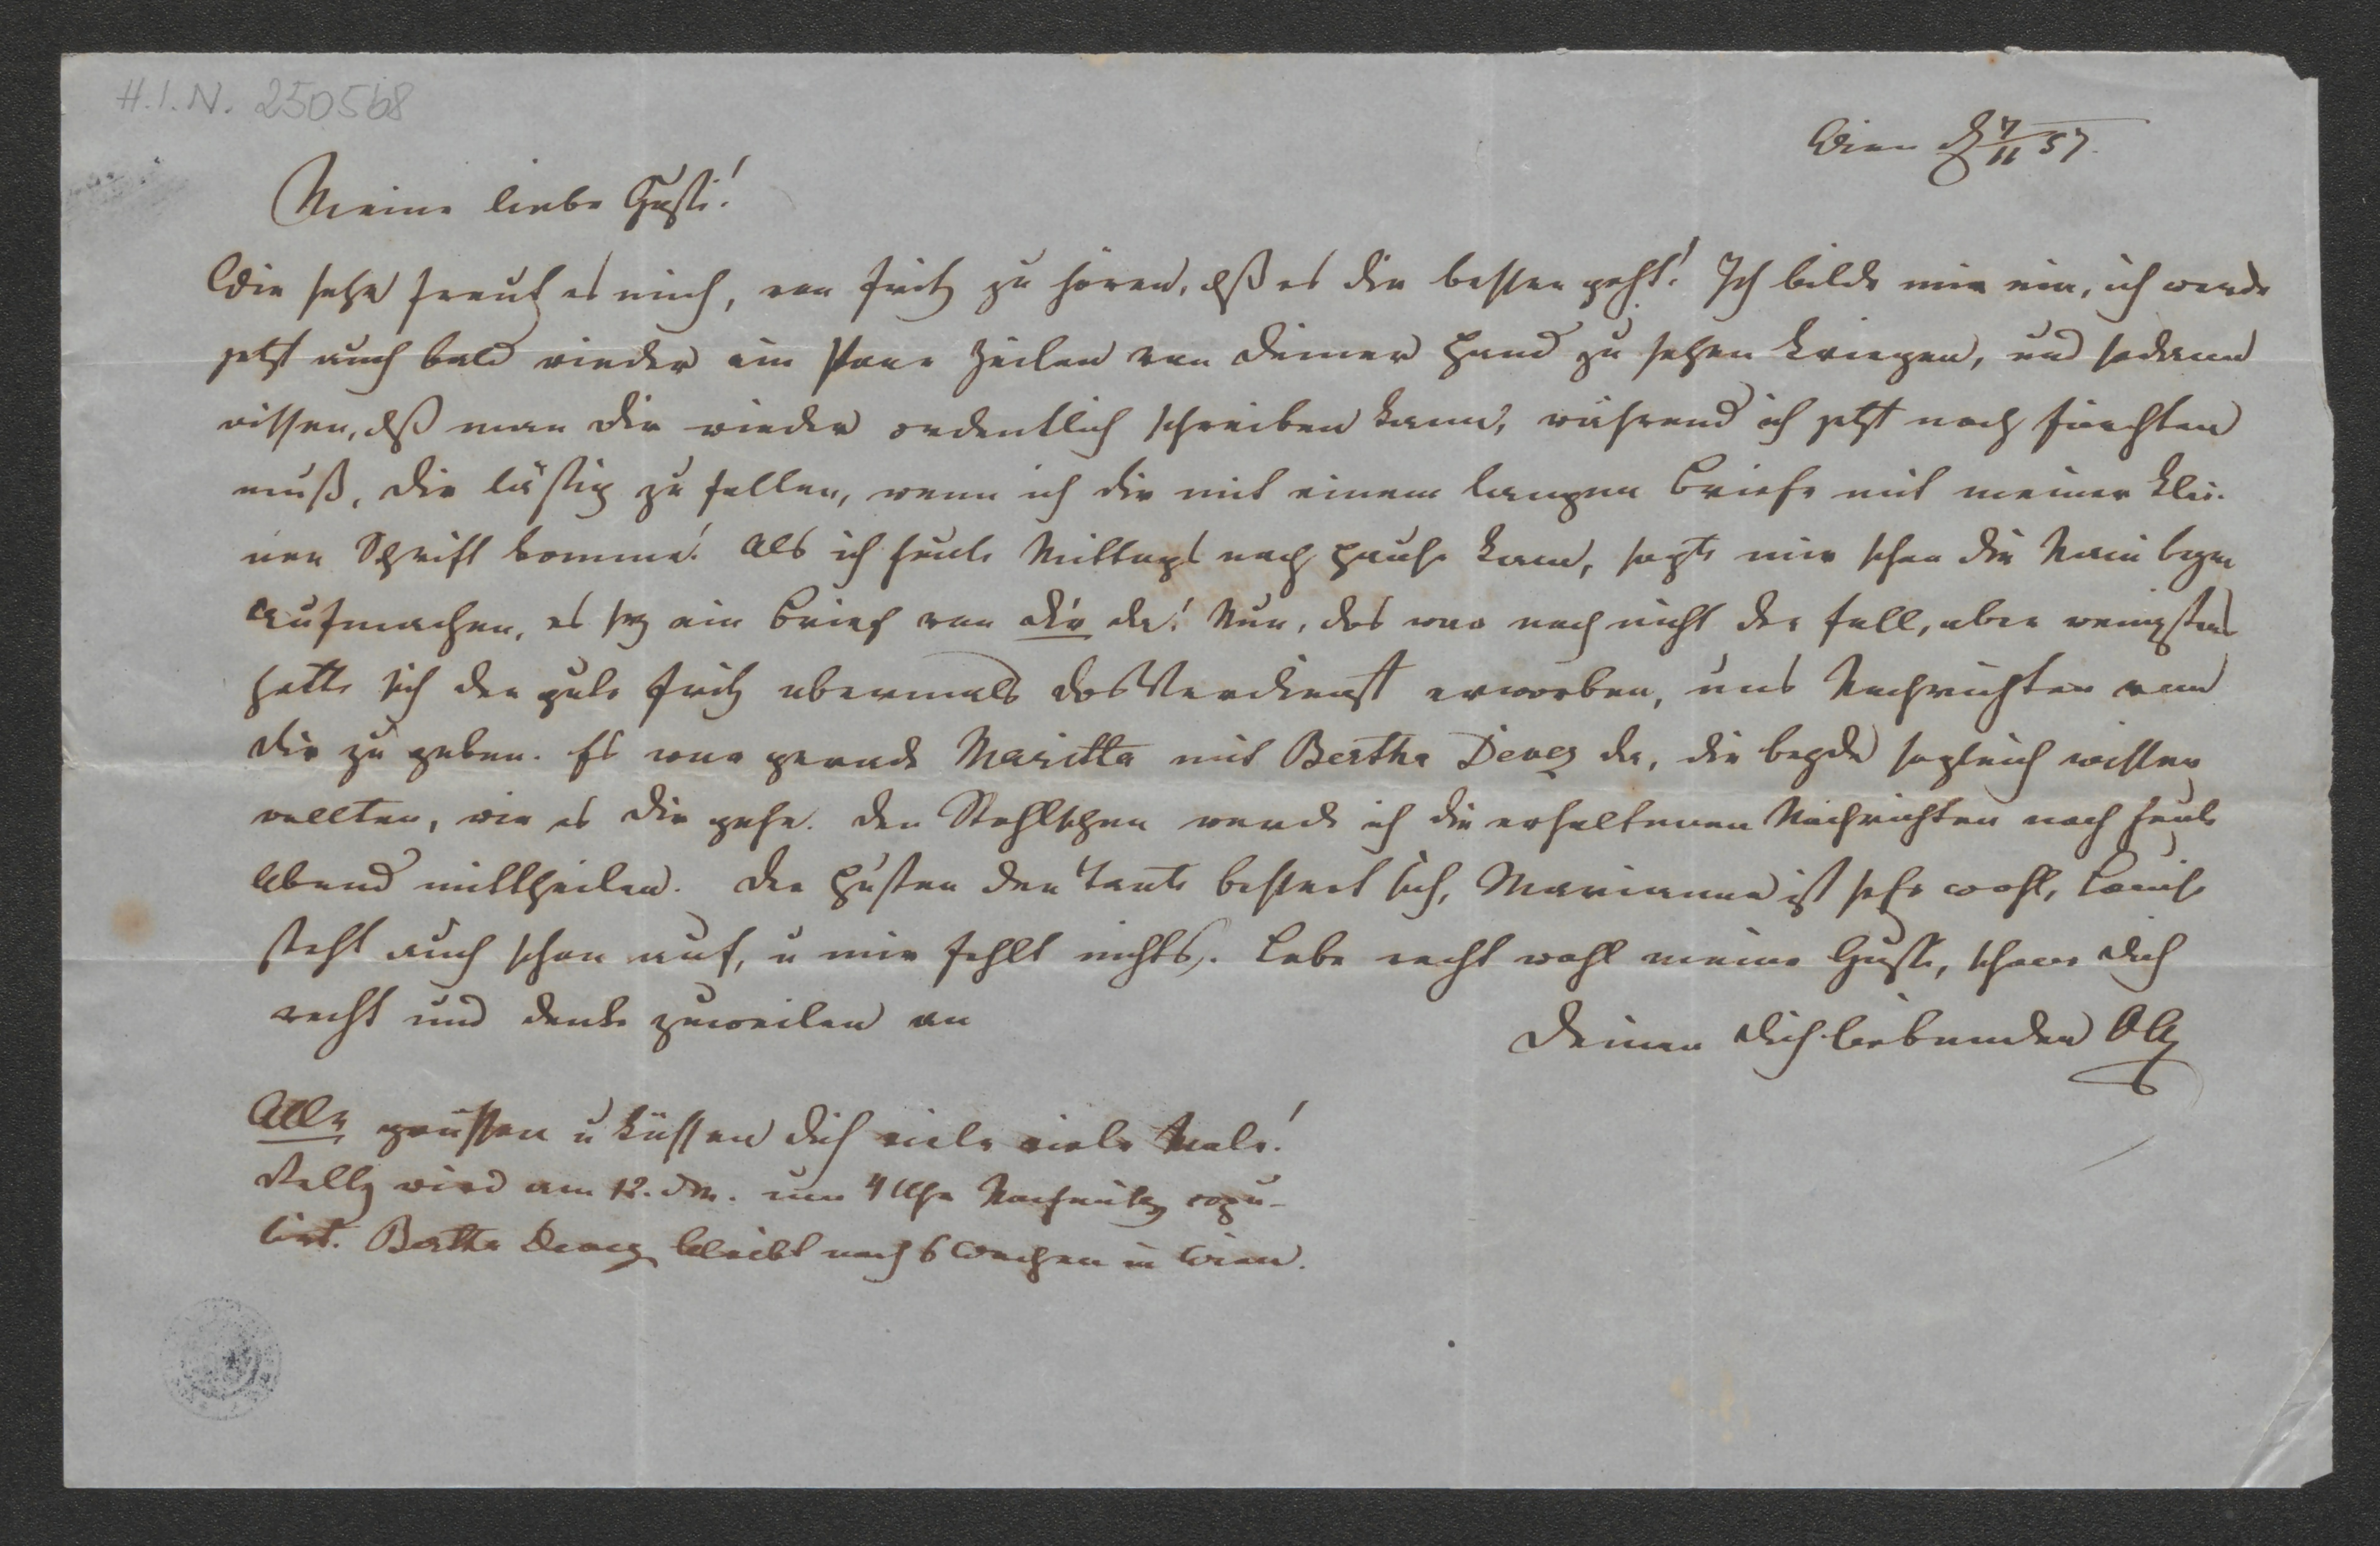 H.I.N. 250568
Wien d 7/11 57.
Meine liebe Gusti!
Wie sehr freut es mich, von Fritz zu hören, dß es dir besser geht! Ich bilde mir ein, ich werde
jetzt auch bald wieder ein Paar Zeilen von deiner Hand zu sehen kriegen, und sodann
wissen, dß man dir wieder ordentlich schreiben kann, während ich jetzt noch fürchten
muß, dir lästig zu fallen, wenn ich dir mit einem langen Briefe mit meiner klei-
nen Schrift komme! Als ich heute Mittags nach Hause kam, sagte mir schon die Nani beym
Aufmachen, es sey ein Brief von dir da! Nun, das war noch nicht der Fall, aber wenigstens
hatte sich der gute Fritz abermals das Verdienst erworben, uns Nachrichten von
dir zu geben. Es war gerade Marietta mit Bertha Devez da, die beyde sogleich wissen
wollten, wie es dir gehe. Den werde ich die erhaltenen Nachrichten noch heute
Abend mittheilen. Der Husten der Tante bessert sich, Marianne ist sehr wohl, Louise
steht auch schon auf, u mir fehlt nichts. Lebe recht wohl meine Gusti, schone dich
recht und denke zuweilen an
Deinen dich liebenden
Alle grüssen u küssen dich viele viele Male!
wird am 12. dM. um 4 Uhr Nachmittg copu-
lirt. Bertha Devez bleibt noch 6 Wochen in Wien.